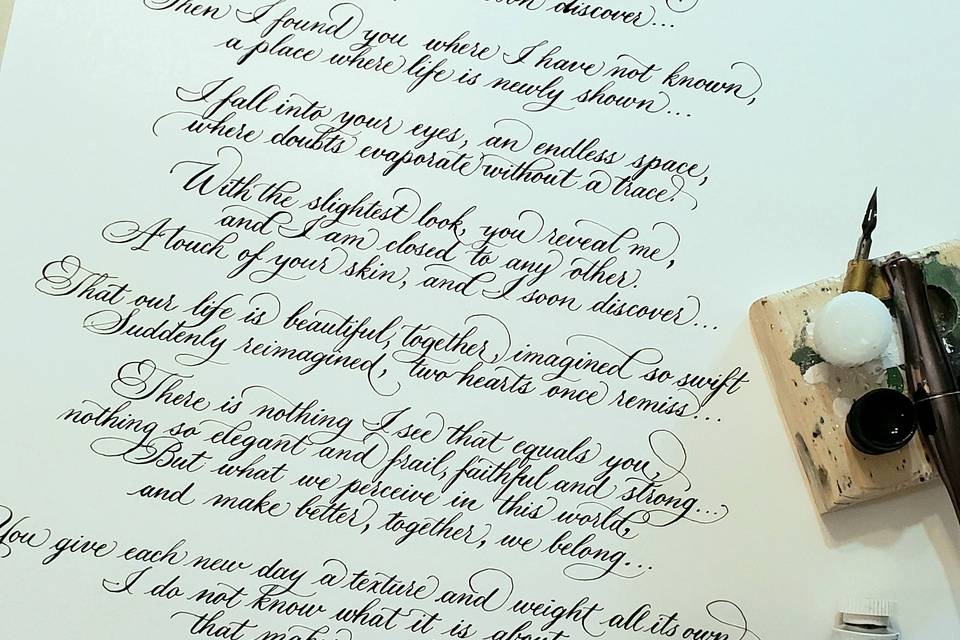 soon discover...
Then I found you where I have not known,
a place where life is newly shown...
I fall into your eyes, an endless space,
where doubts evaporate without a trace.
With the slightest look, you reveal me,
and I am closed to any other.
A touch of your skin, and I soon discover...
That our life is beautiful, together, imagined so swift
Suddenly reimagined, two hearts once remiss...
There is nothing I see that equals you,
nothing so elegant and frail, faithful and strong...
But what we perceive in this world,
and make better, together, we belong...
You give each new day a texture and weight all its own
I do not know what it is about
that